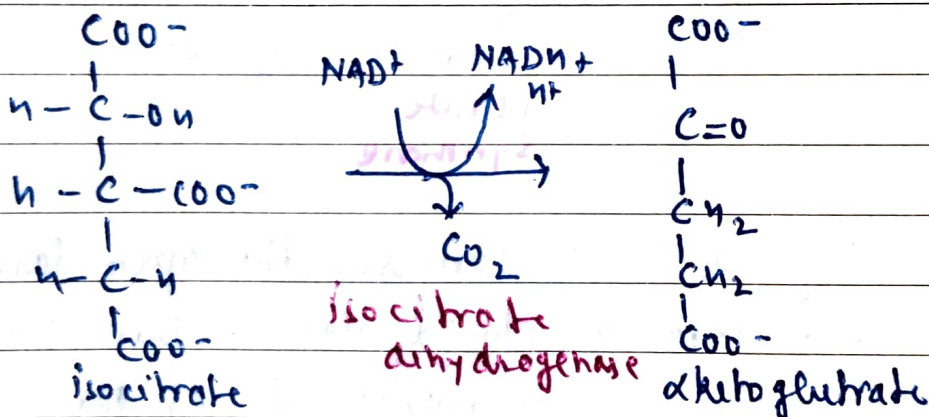 COO⁻
H - C - OH
H - C - COO⁻
H - C - H
COO⁻
isocitrate
NAD⁺ NADH +
H⁺
CO₂
isocitrate
dihydrogenase
COO⁻
C=O
CH₂
CH₂
COO⁻
αketoglutrate